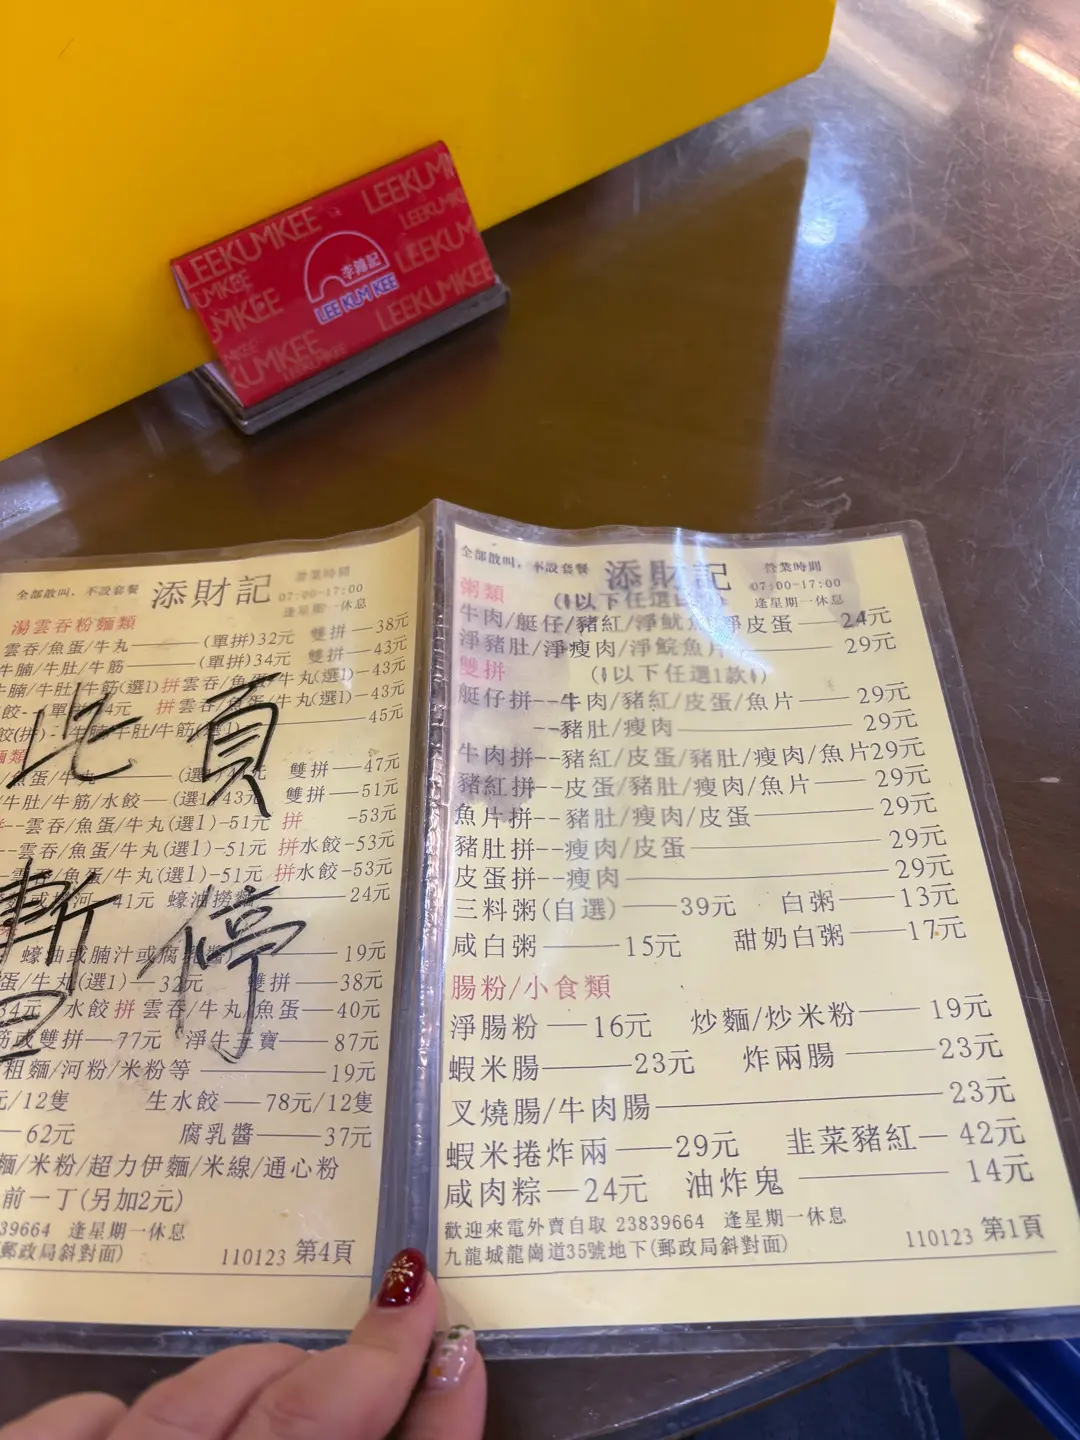 LEEKUMKEE
LEEKUMKEE
李錦記
LEE KUM KEE
全部散叫，不設套餐
添財記
營業時間
07:00-17:00
逢星期一休息
湯雲吞粉麵類
雲吞/魚蛋/牛丸——(單拼)32元 雙拼—38元
牛腩/牛肚/牛筋——(單拼)34元 雙拼—43元
牛腩/牛肚/牛筋(選1)拼雲吞/魚蛋/牛丸(選1)-43元
拼雲吞/魚蛋/牛丸(選1)—43元
45元
雙拼—47元
牛肚/牛筋/水餃—(選1)43元 雙拼—51元
--雲吞/魚蛋/牛丸(選1)-51元 拼 -53元
--雲吞/魚蛋/牛丸(選1)-51元 拼水餃-53元
雲吞/魚蛋/牛丸(選1)-51元 拼水餃-53元
41元 蠔油撈麵 24元
蠔油或腩汁或腐乳醬) 19元
蛋/牛丸(選1)—32元 雙拼—38元
34元 水餃拼雲吞/牛丸/魚蛋—40元
筋或雙拼—77元 淨牛三寶——87元
粗麵/河粉/米粉等 ——19元
元/12隻 生水餃——78元/12隻
—62元 腐乳醬——37元
麵/米粉/超力伊麵/米線/通心粉
前一丁(另加2元)
39664 逢星期一休息
郵政局斜對面)
110123 第4頁
此頁
暫停
全部散叫，不設套餐
添財記
營業時間
07:00-17:00
逢星期一休息
粥類
牛肉/艇仔/豬紅/淨魷魚/淨皮蛋——24元
淨豬肚/淨瘦肉/淨鯇魚片 29元
雙拼 (以下任選1款)
艇仔拼--牛肉/豬紅/皮蛋/魚片——29元
--豬肚/瘦肉——29元
牛肉拼--豬紅/皮蛋/豬肚/瘦肉/魚片29元
豬紅拼--皮蛋/豬肚/瘦肉/魚片——29元
魚片拼--豬肚/瘦肉/皮蛋——29元
豬肚拼--瘦肉/皮蛋——29元
皮蛋拼--瘦肉——29元
三料粥(自選)——39元 白粥——13元
咸白粥——15元 甜奶白粥——17元
腸粉/小食類
淨腸粉—16元 炒麵/炒米粉—19元
蝦米腸——23元 炸兩腸——23元
叉燒腸/牛肉腸——23元
蝦米捲炸兩——29元 韭菜豬紅—42元
咸肉粽—24元 油炸鬼——14元
歡迎來電外賣自取 23839664 逢星期一休息
九龍城龍崗道35號地下(郵政局斜對面)
110123 第1頁